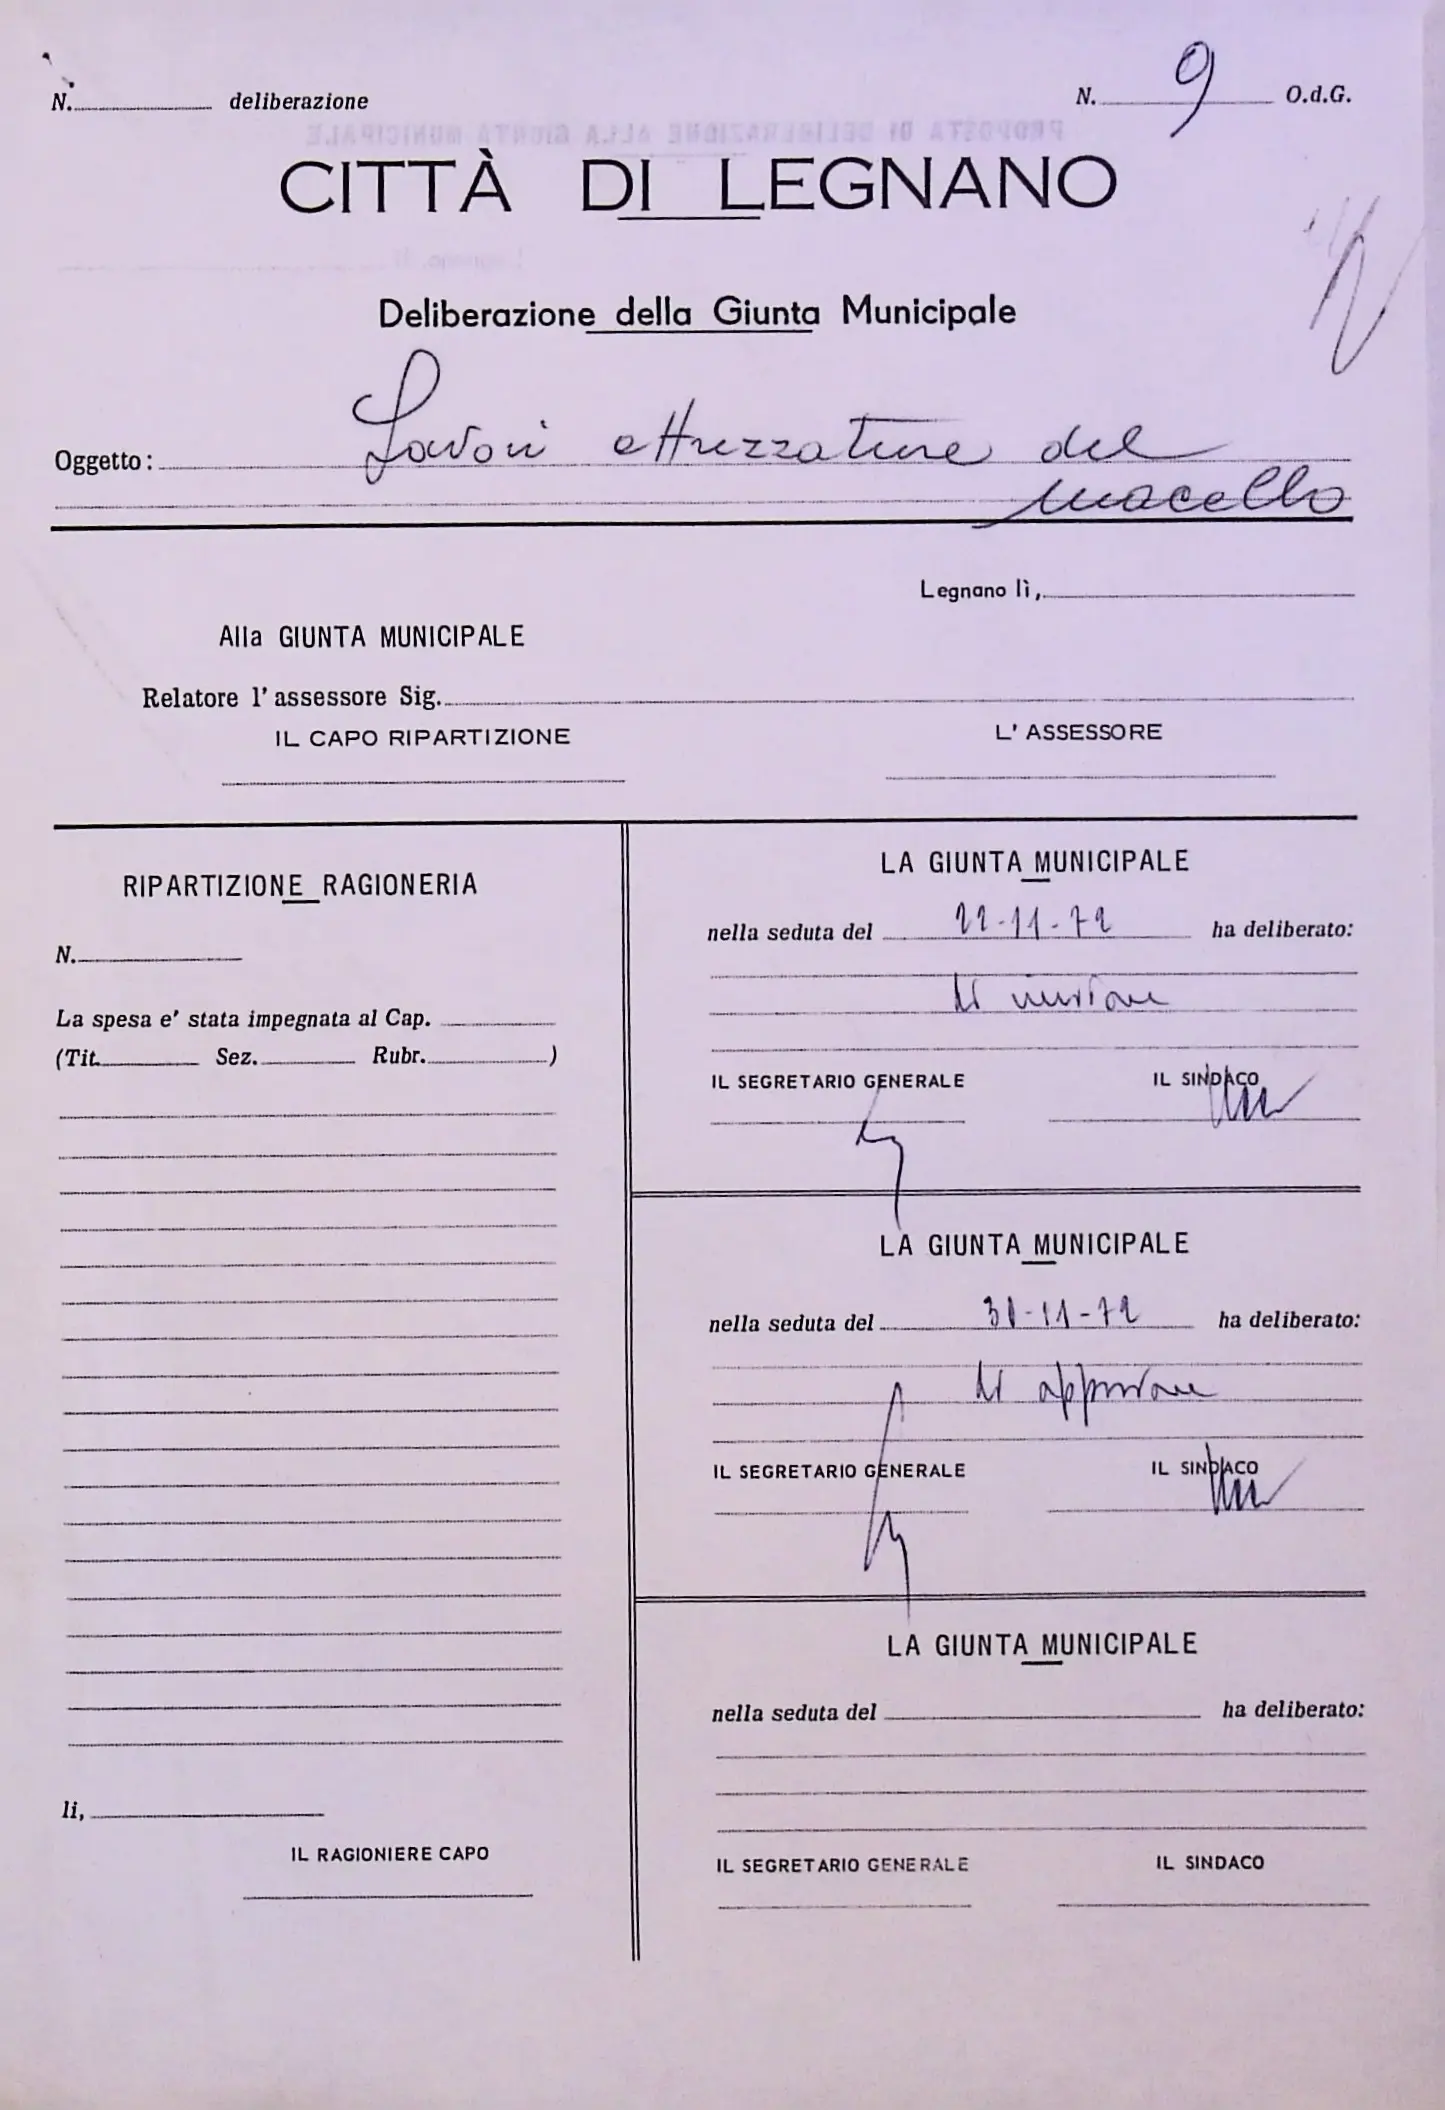 N. deliberazione
N. 9 O.d.G.
PROPOSTA DI DELIBERAZIONE ALLA GIUNTA MUNICIPALE
CITTÀ DI LEGNANO
Legnano, lì
Deliberazione della Giunta Municipale
Oggetto: Lavori attrezzature del
macello
Legnano lì,
Alla GIUNTA MUNICIPALE
Relatore l'assessore Sig.
IL CAPO RIPARTIZIONE
L'ASSESSORE
RIPARTIZIONE RAGIONERIA
N.
La spesa e' stata impegnata al Cap.
(Tit. Sez. Rubr. )
li,
IL RAGIONIERE CAPO
LA GIUNTA MUNICIPALE
nella seduta del 22-11-72 ha deliberato:
di
IL SEGRETARIO GENERALE IL SINDACO
LA GIUNTA MUNICIPALE
nella seduta del 31-11-72 ha deliberato:
di approvare
IL SEGRETARIO GENERALE IL SINDACO
LA GIUNTA MUNICIPALE
nella seduta del ha deliberato:
IL SEGRETARIO GENERALE IL SINDACO